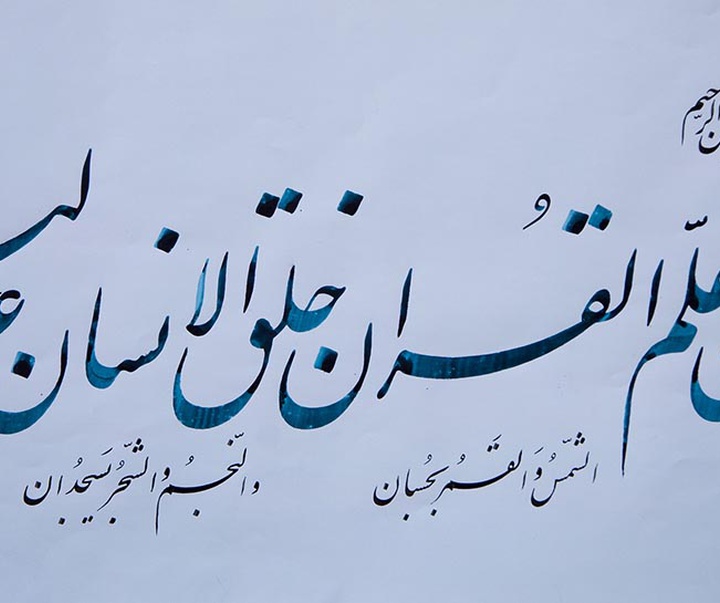 الرحیم
علّم القرُان خلق الانسان
الشّمسُ وَالقَمرُ بحُسبان
والنّجمُ والشّجرُ یَسجُدان